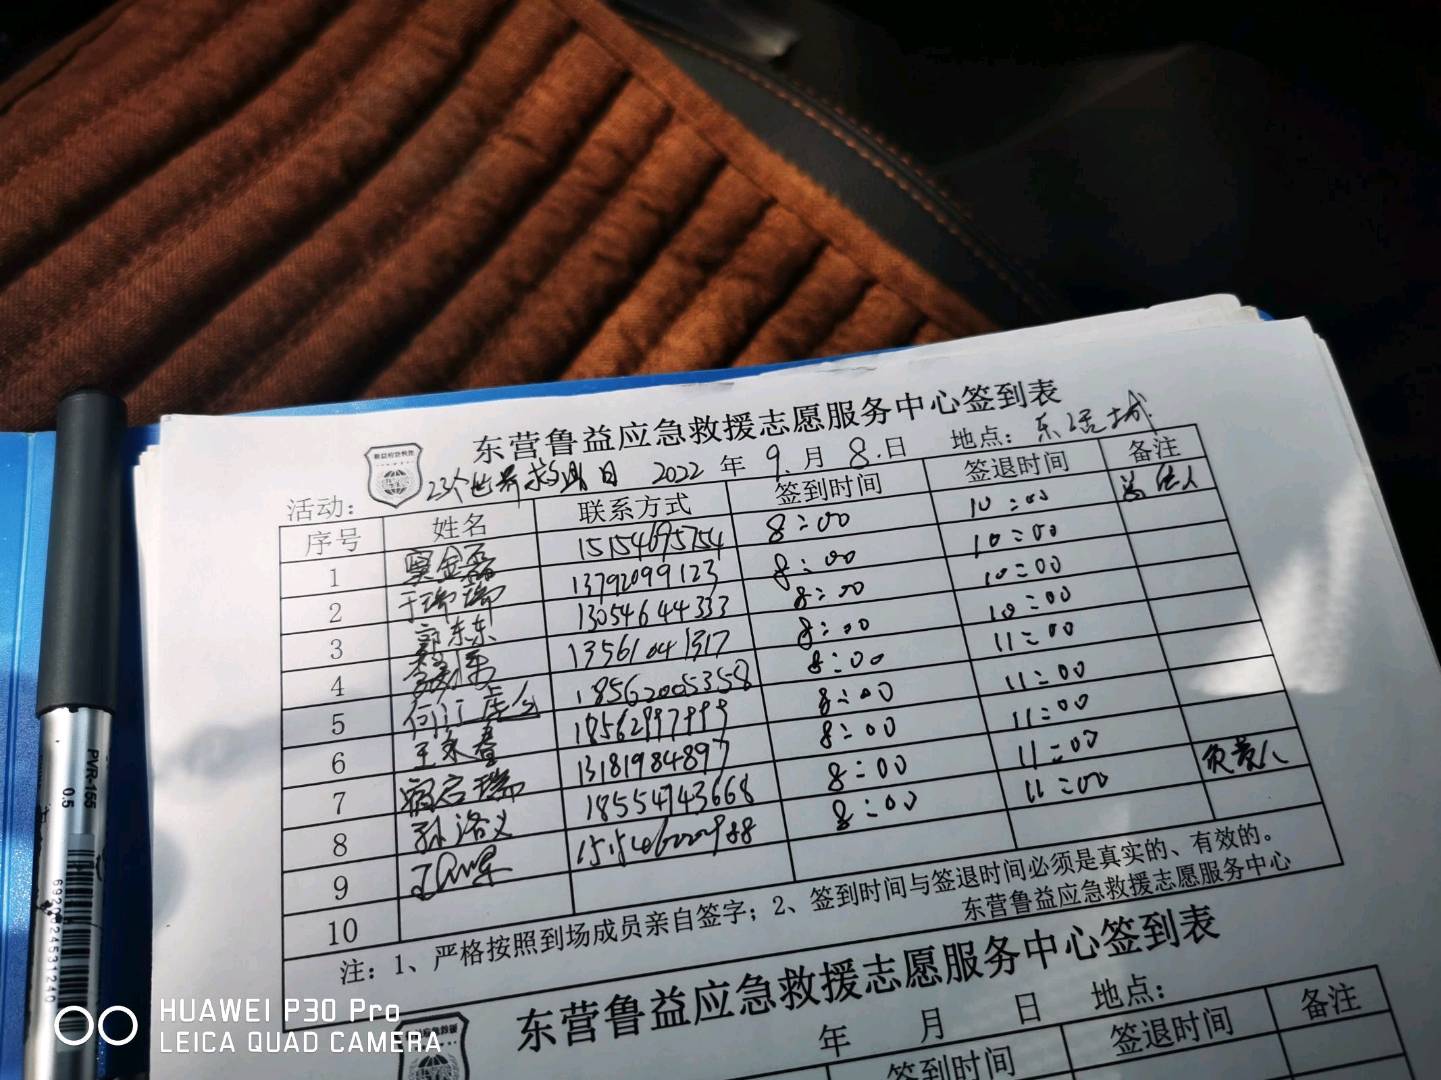 东营鲁益应急救援志愿服务中心签到表
活动: 23个世界救助日 2022 年 9 月 8 日 地点: 东
序号 姓名 联系方式 签到时间 签退时间 备注
1 15154695754 8:00 10:00
2 于瑞瑞 13792099123 8:00 10:00
3 郭东东 13054644333 8:00 10:00
4 13561041317 8:00 10:00
5 18562005358 8:00 11:00
6 王永春 18562997999 8:00 11:00
7 宿启瑞 13181984897 8:00 11:00
8 孙洛义 18554743668 8:00 11:00
9 8:00 11:00 负责人
10
注:1、严格按照到场成员亲自签字;2、签到时间与签退时间必须是真实的、有效的。
东营鲁益应急救援志愿服务中心
东营鲁益应急救援志愿服务中心签到表
年 月 日 地点:
签到时间 签退时间 备注
PVR-155
0.5
HUAWEI P30 Pro
LEICA QUAD CAMERA